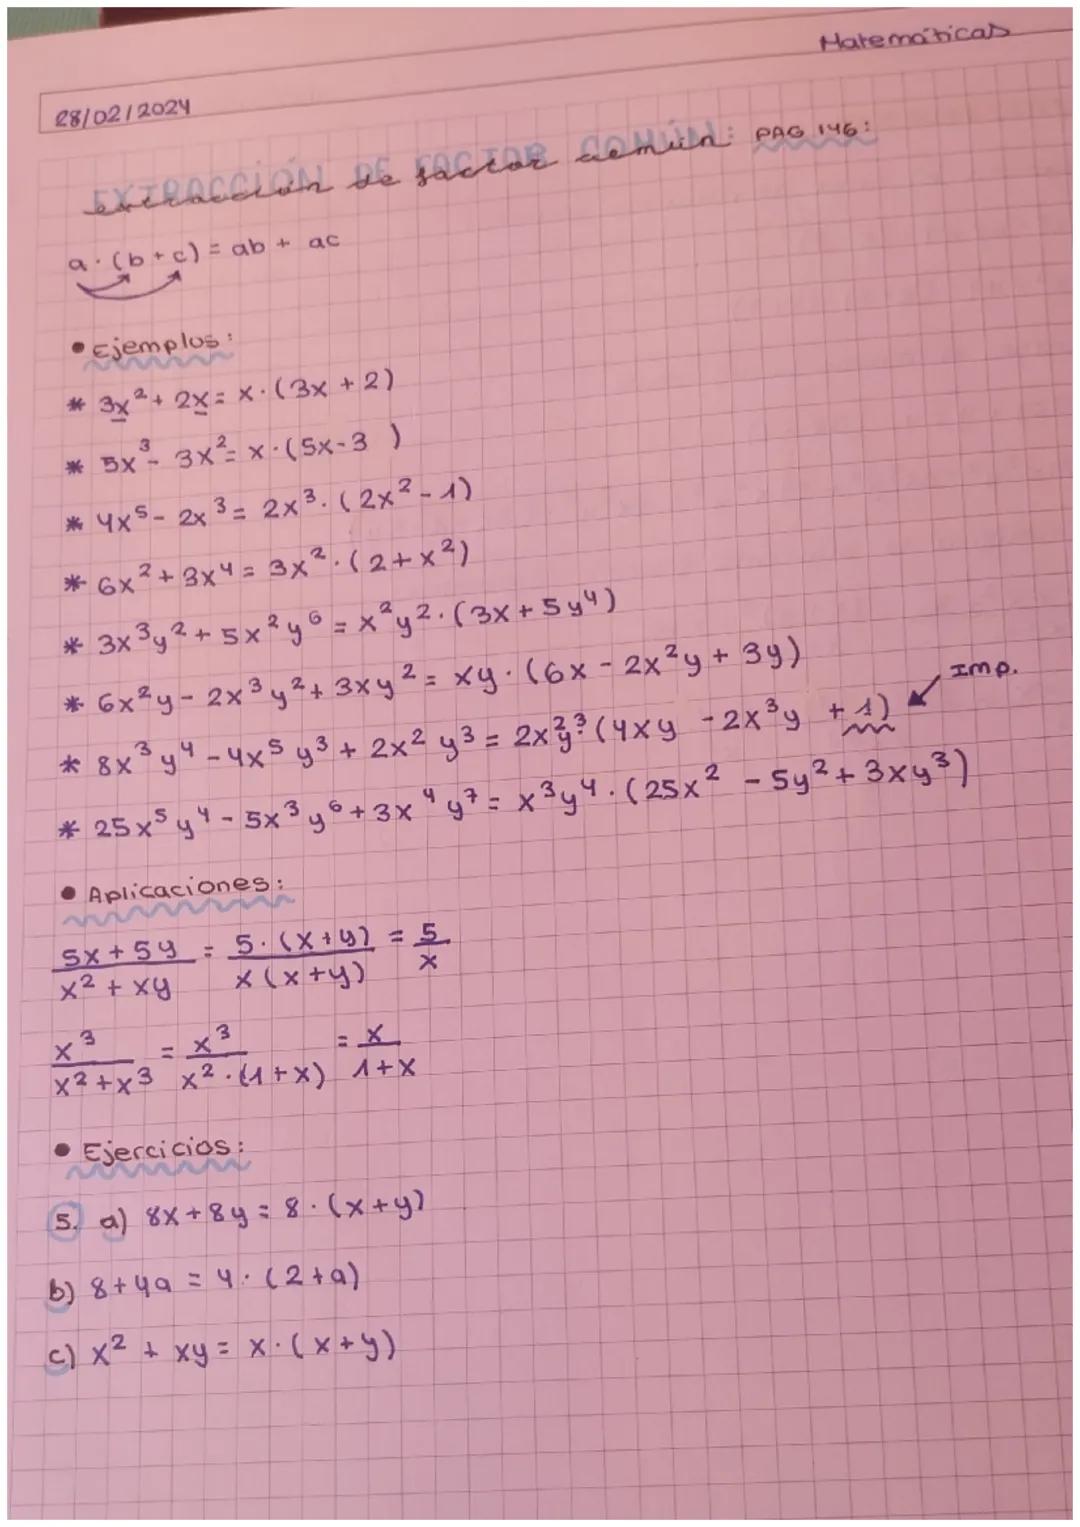 Matemáticas
28/02/2024
EXTRACCIÓN DE FACTOR COMÚN: PAG 146:
extracción de factor común
a · (b + c) = ab + ac
• Ejemplos:
* 3x² + 2x = x · (3x + 2)
* 5x³ - 3x² = x · (5x - 3 )
* 4x⁵ - 2x³ = 2x³ · (2x² - 1)
* 6x² + 3x⁴ = 3x² · (2 + x²)
* 3x³y² + 5x²y⁶ = x²y² · (3x + 5y⁴)
* 6x²y - 2x³y² + 3xy² = xy · (6x - 2x²y + 3y)
Imp.
* 8x³y⁴ - 4x⁵y³ + 2x²y³ = 2x²y³ · (4xy - 2x³y + 1)
* 25x⁵y⁴ - 5x³y⁶ + 3x⁴y⁷ = x³y⁴ · (25x² - 5y² + 3xy³)
• Aplicaciones:
5x + 5y / x² + xy = 5 · (x + y) / x (x + y) = 5 / x
x³ / x² + x³ = x³ / x² · (1 + x) = x / 1 + x
• Ejercicios:
5. a) 8x + 8y = 8 · (x + y)
b) 8 + 4a = 4 · (2 + a)
c) x² + xy = x · (x + y)